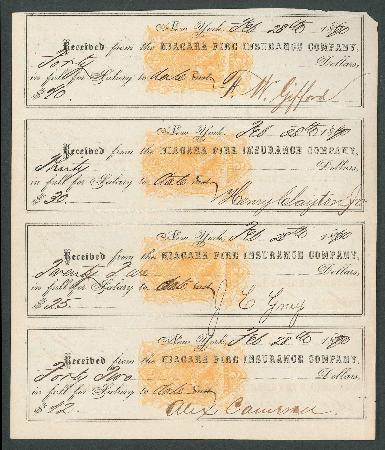 New York, Feb 28th 1870
Received from the NIAGARA FIRE INSURANCE COMPANY,
Forty Dollars,
in full for Salary to date
$40. F. W. Gifford
New York, Feb 28th 1870
Received from the NIAGARA FIRE INSURANCE COMPANY,
Thirty Dollars,
in full for Salary to date
$30. Henry Clayton Jr
New York, Feb 28th 1870
Received from the NIAGARA FIRE INSURANCE COMPANY,
Twenty Five Dollars,
in full for Salary to date
$25. J E Gray
New York, Feb 28th 1870
Received from the NIAGARA FIRE INSURANCE COMPANY,
Forty Two Dollars,
in full for Salary to date
$42. Alex Cameron